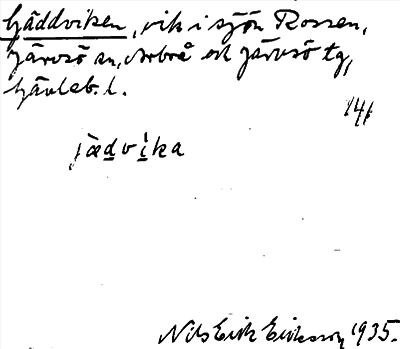 Gäddviken, vik i sjön Rossen,
Järvsö sn, Arbrå och Järvsö tg,
Gävleb. l.
141
jädvika
Nils Erik Eriksson 1935.